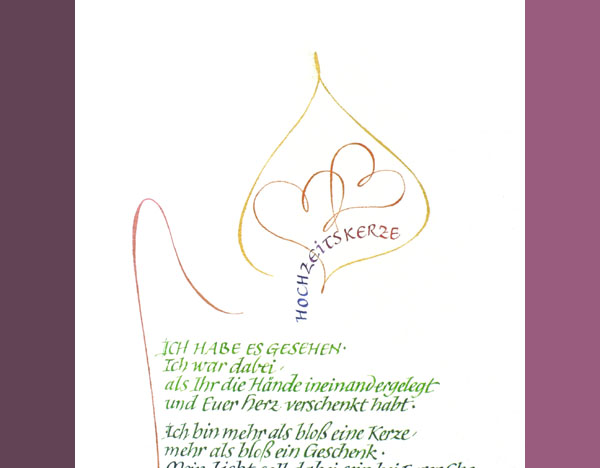 HOCHZEITSKERZE
ICH HABE ES GESEHEN·
Ich war dabei,
als Ihr die Hände ineinandergelegt
und Euer Herz verschenkt habt·
Ich bin mehr als bloß eine Kerze,
mehr als bloß ein Geschenk·
Mein Licht soll dabei sein